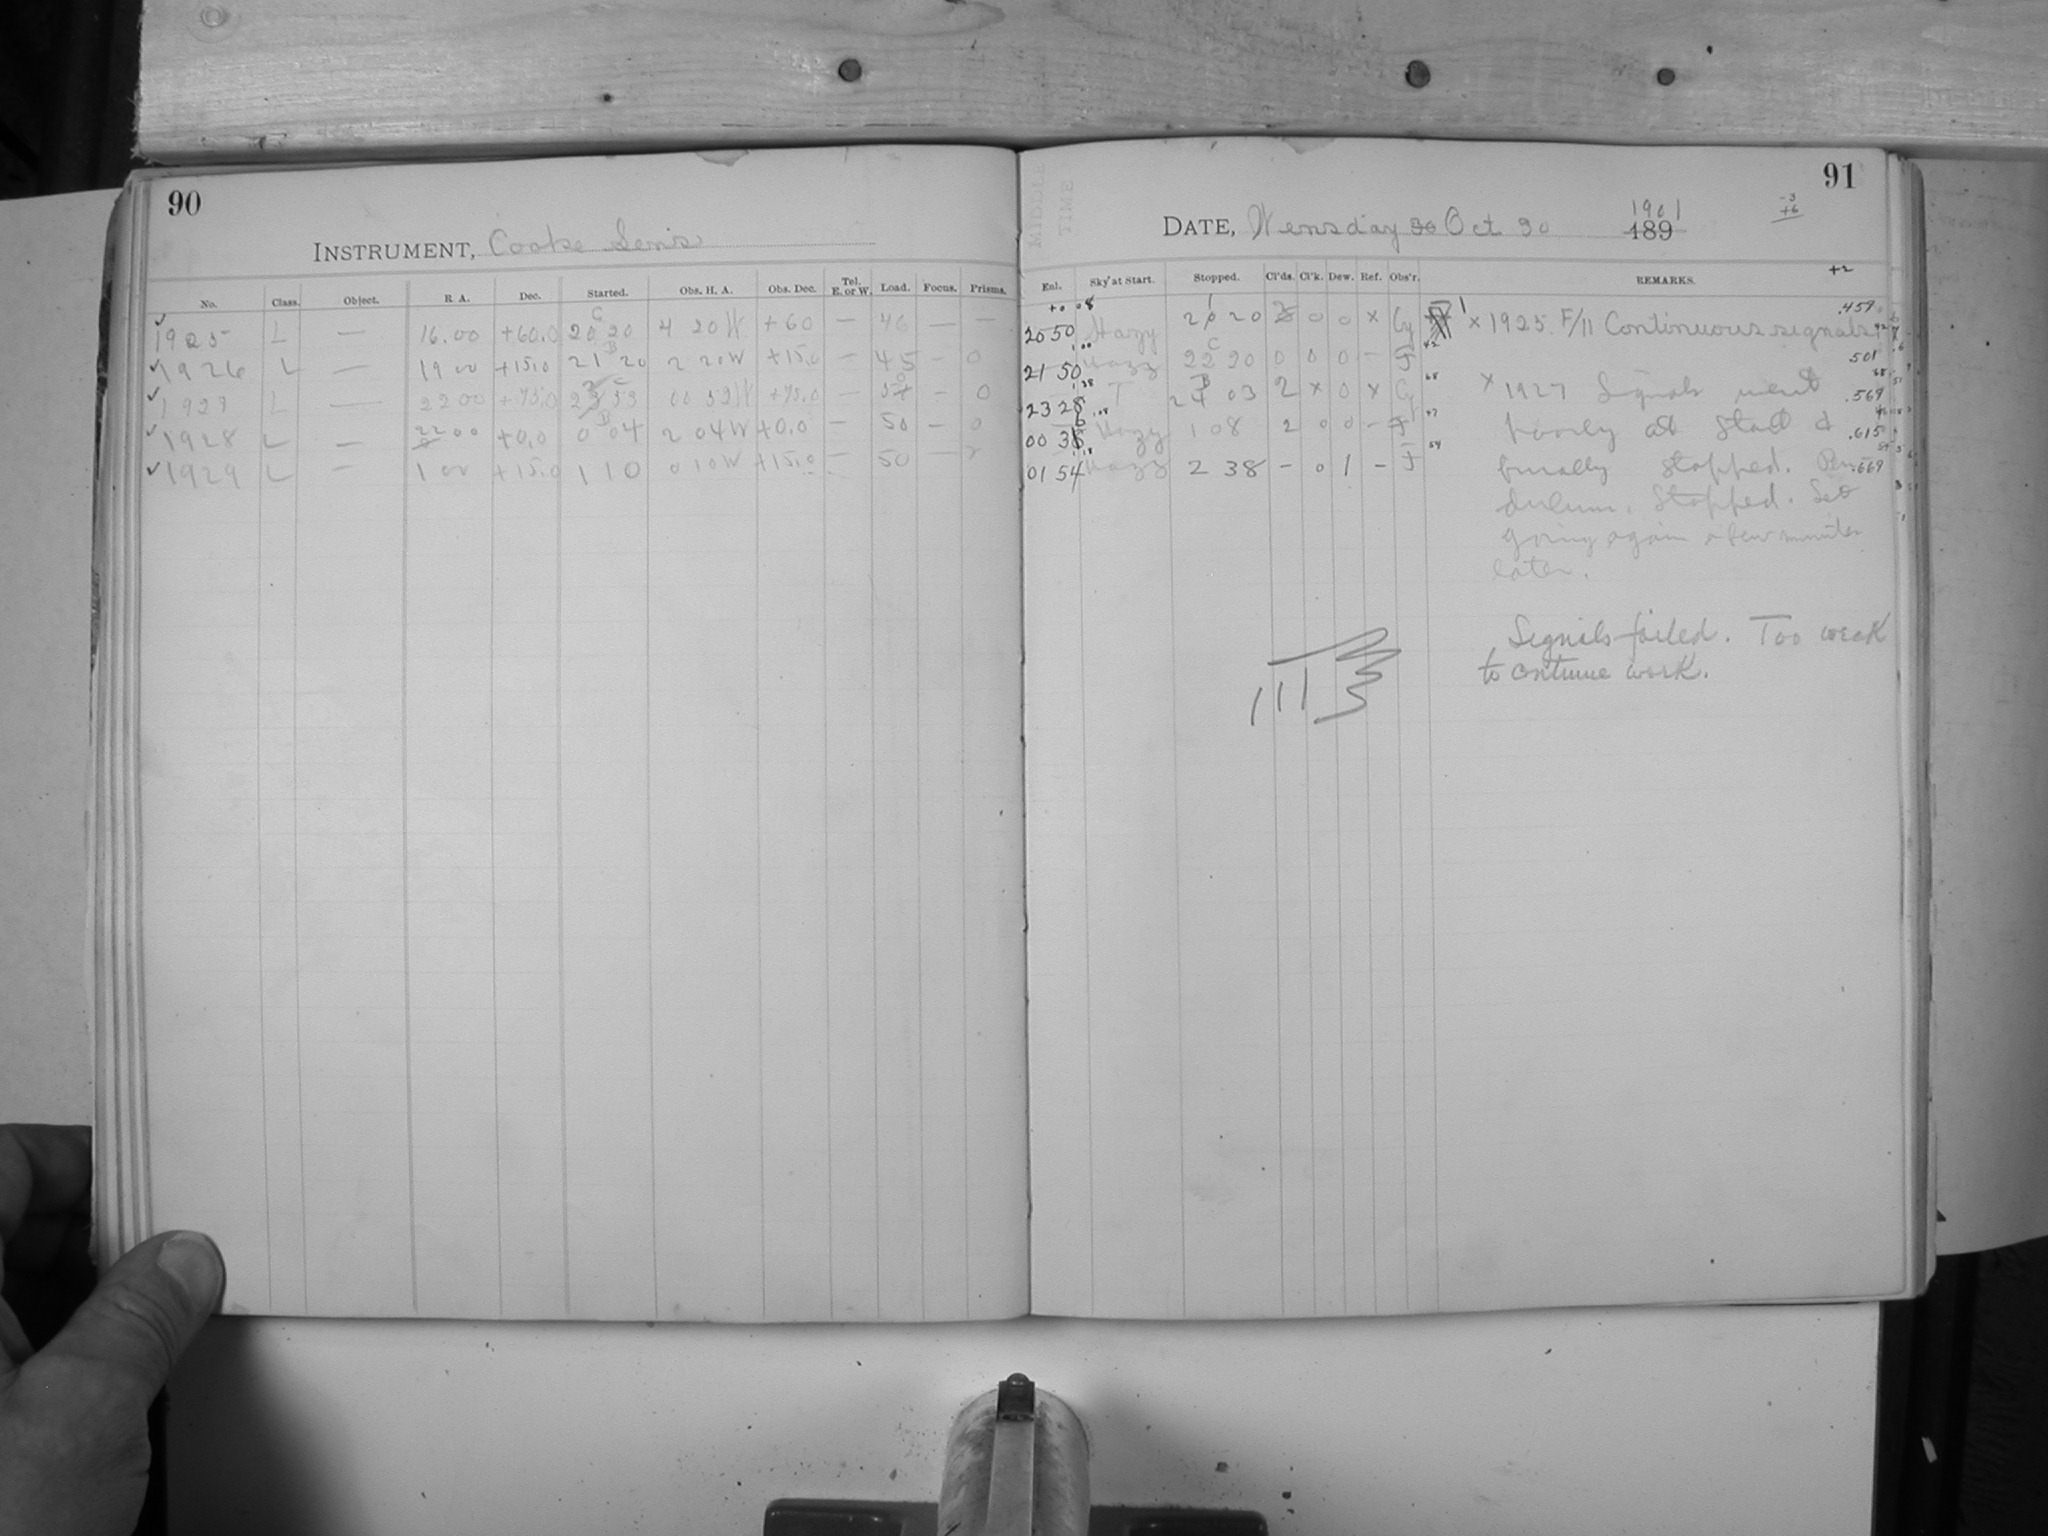 90
INSTRUMENT, Cooke Lens
No. Class. Object. R. A. Dec. Started. Obs. H. A. Obs. Dec. Tel. E. or W. Load. Focus. Prisms.
✓ 1925 L — 16.00 +60.0 20 20 4 20 W +60 — 46 — —
✓ 1926 L — 19 00 +15.0 21 20 2 20 W +15.0 — 45 — 0
✓ 1927 L — 22 00 +75.0 23 53 00 52 W +75.0 — — 0
✓ 1928 L — 22 00 +0.0 0 04 2 04 W +0.0 — 50 — 0
✓ 1929 L — 1 00 +15.0 1 10 0 10 W +15.0 — 50 —
91
DATE, Wensday 30 Oct 30 1901 189
-3
+6
Exl. Sky at Start. Stopped. Cl'ds. Cl'k. Dew. Ref. Obs'r. REMARKS.
+2
20 50 Hazy 20 20 0 0 x Cy x 1925. F/11 Continuous signals .459
21 50 Hazy 22 20 0 0 0 — F .501
23 28 T 24 03 2 x 0 x Cy x 1927 Signals went .569
00 36 Hazy 1 08 2 0 0 — F poorly at start & .615
01 54 Hazy 2 38 — 0 1 — F finally stopped. Pen- .669
dulum. Stopped. Set
going again a few minutes
later.
Signals failed. Too weak
to continue work.